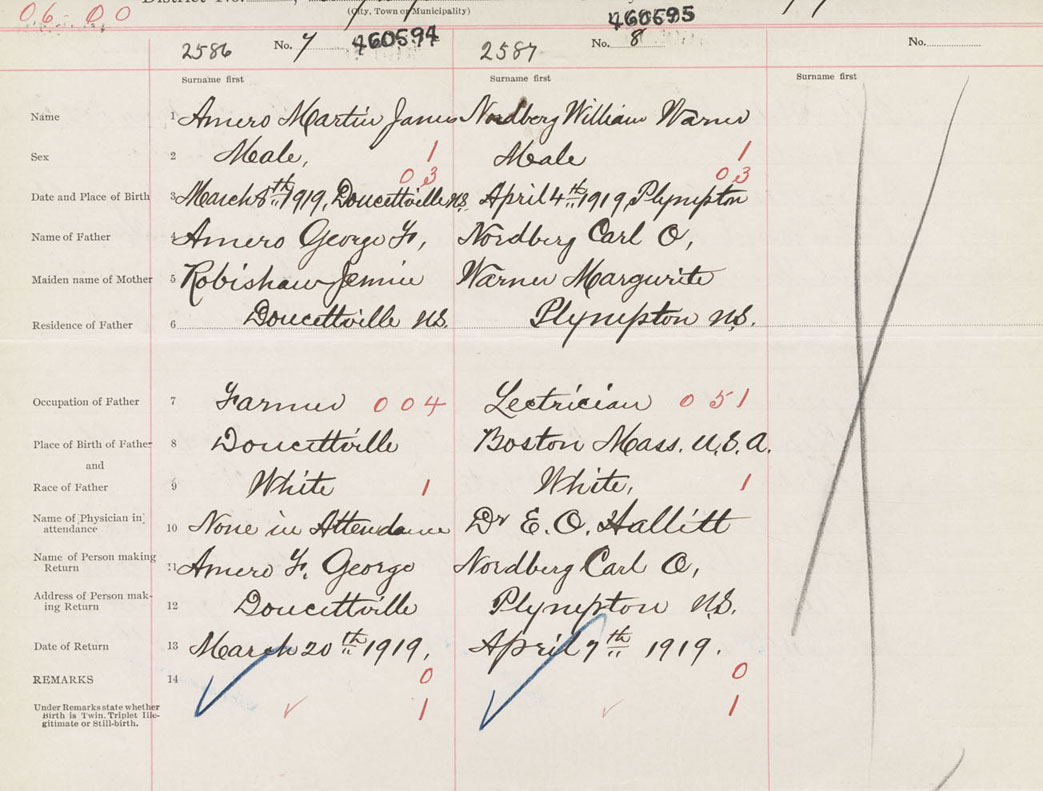 06 00
District No.
(City, Town or Municipality)
2586 No. 7 460594 2587 No. 8 460595 No.
Surname first Surname first Surname first
Name 1 Amero Martin James Nordberg William Warner
Sex 2 Male, 1 Male 1
03 03
Date and Place of Birth 3 March 8th 1919, Doucettville NS. April 4th 1919, Plympton
Name of Father 4 Amero George F, Nordberg Carl O,
Maiden name of Mother 5 Robishaw Jennie Warner Margurite
Residence of Father 6 Doucettville NS. Plympton NS.
Occupation of Father 7 Farmer 004 Lectrician 051
Place of Birth of Father 8 Doucettville Boston Mass. U.S.A.
and
Race of Father 9 White 1 White, 1
Name of Physician in attendance 10 None in Attendance Dr E. O. Hallitt
Name of Person making Return 11 Amero F. George Nordberg Carl O,
Address of Person making Return 12 Doucettville Plympton NS.
Date of Return 13 March 20th 1919, April 7th 1919.
REMARKS 14 0 0
Under Remarks state whether Birth is Twin, Triplet Ille-gitimate or Still-birth. 1 1